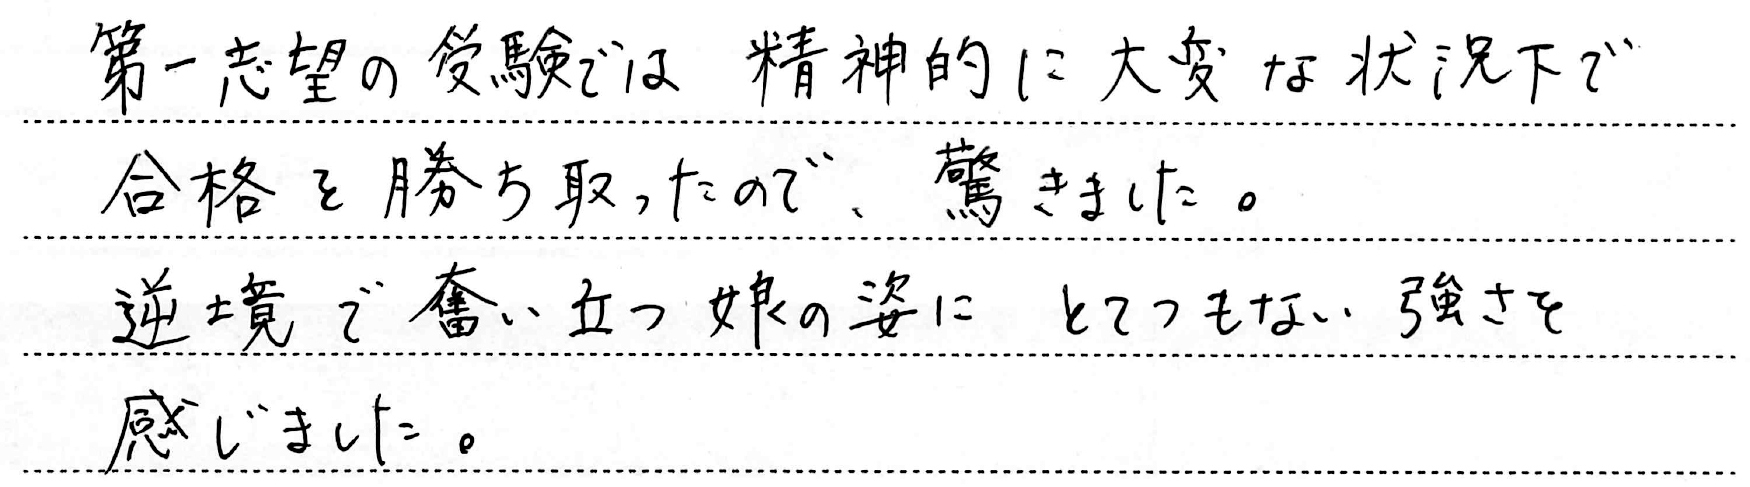 第一志望の受験では 精神的に大変な状況下で
合格を勝ち取ったので、驚きました。
逆境で奮い立つ娘の姿に とてつもない強さを
感じました。